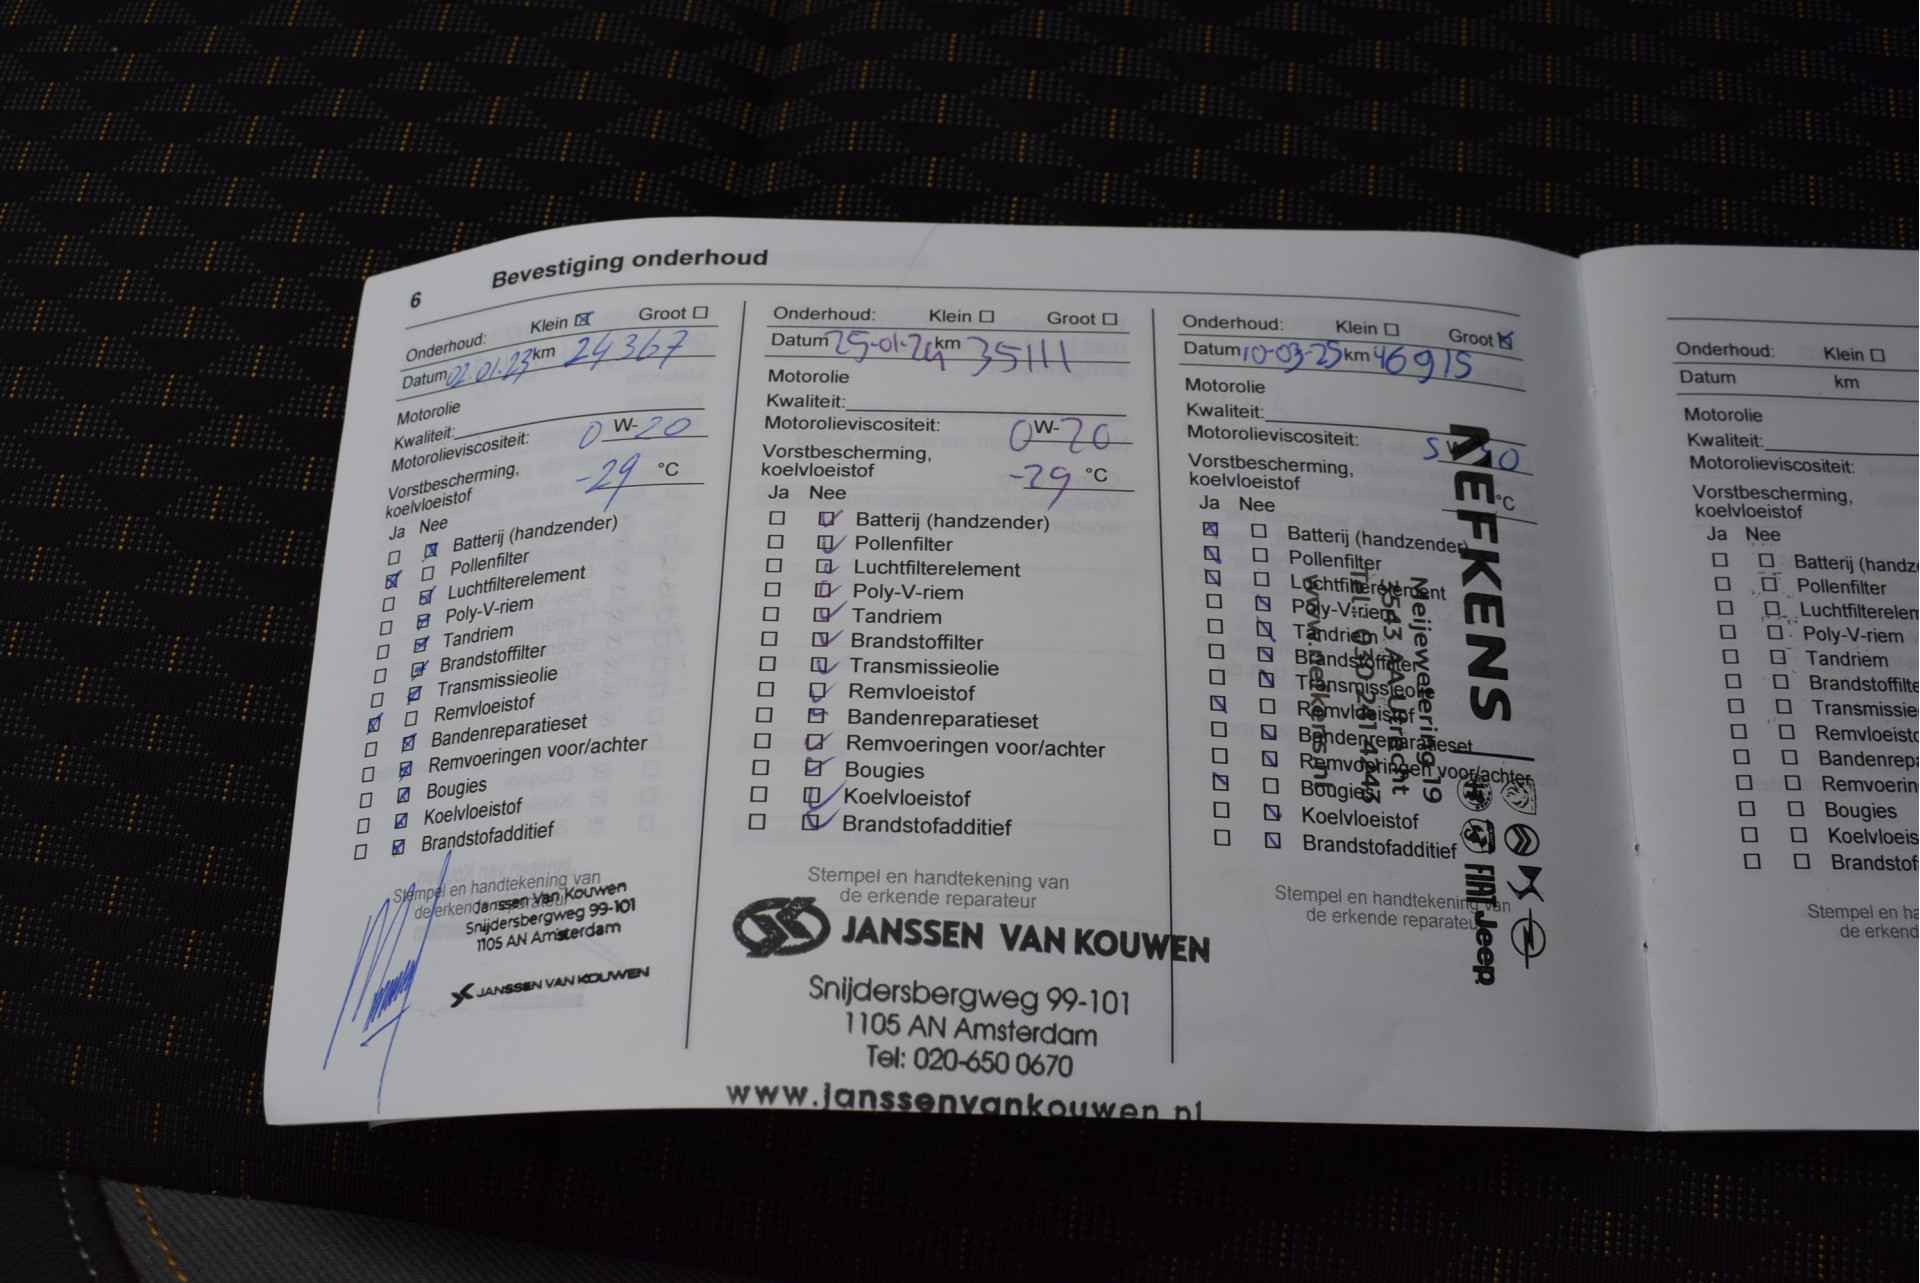 6 Bevestiging onderhoud
Onderhoud: Klein Groot
Datum 02-01-23 km 24367
Motorolie
Kwaliteit:
Motorolieviscositeit: 0 W-20
Vorstbescherming,
koelvloeistof -29 °C
Ja Nee
Batterij (handzender)
Pollenfilter
Luchtfilterelement
Poly-V-riem
Tandriem
Brandstoffilter
Transmissieolie
Remvloeistof
Bandenreparatieset
Remvoeringen voor/achter
Bougies
Koelvloeistof
Brandstofadditief
Stempel en handtekening van
de erkende reparateur
Janssen Van Kouwen
Snijdersbergweg 99-101
1105 AN Amsterdam
JANSSEN VAN KOUWEN
Onderhoud: Klein Groot
Datum 25-01-24 km 35111
Motorolie
Kwaliteit:
Motorolieviscositeit: 0 W-20
Vorstbescherming,
koelvloeistof -29 °C
Ja Nee
Batterij (handzender)
Pollenfilter
Luchtfilterelement
Poly-V-riem
Tandriem
Brandstoffilter
Transmissieolie
Remvloeistof
Bandenreparatieset
Remvoeringen voor/achter
Bougies
Koelvloeistof
Brandstofadditief
Stempel en handtekening van
de erkende reparateur
JANSSEN VAN KOUWEN
Snijdersbergweg 99-101
1105 AN Amsterdam
Tel: 020-650 0670
www.janssenvankouwen.nl
Onderhoud: Klein Groot
Datum 10-03-25 km 46915
Motorolie
Kwaliteit:
Motorolieviscositeit: 5 W-
Vorstbescherming,
koelvloeistof °C
Ja Nee
Batterij (handzender)
Pollenfilter
Luchtfilterelement
Poly-V-riem
Tandriem
Brandstoffilter
Transmissieolie
Remvloeistof
Bandenreparatieset
Remvoeringen voor/achter
Bougies
Koelvloeistof
Brandstofadditief
Stempel en handtekening van
de erkende reparateur
NEFKENS
Meijewetering 19
3543 AA Utrecht
www.nefkens.nl
FIAT Jeep
Onderhoud: Klein
Datum km
Motorolie
Kwaliteit:
Motorolieviscositeit:
Vorstbescherming,
koelvloeistof
Ja Nee
Batterij (handz
Pollenfilter
Luchtfilterelem
Poly-V-riem
Tandriem
Brandstoffilte
Transmissie
Remvloeisto
Bandenrepa
Remvoerin
Bougies
Koelvloeis
Brandstof
Stempel en ha
de erkend